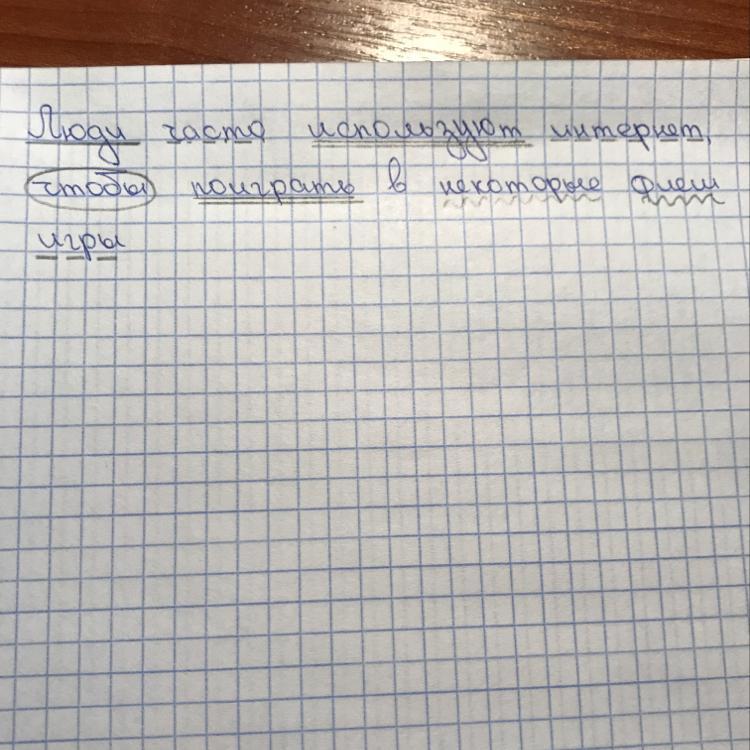 Люди часто используют интернет,
чтобы поиграть в некоторые флеш
игры